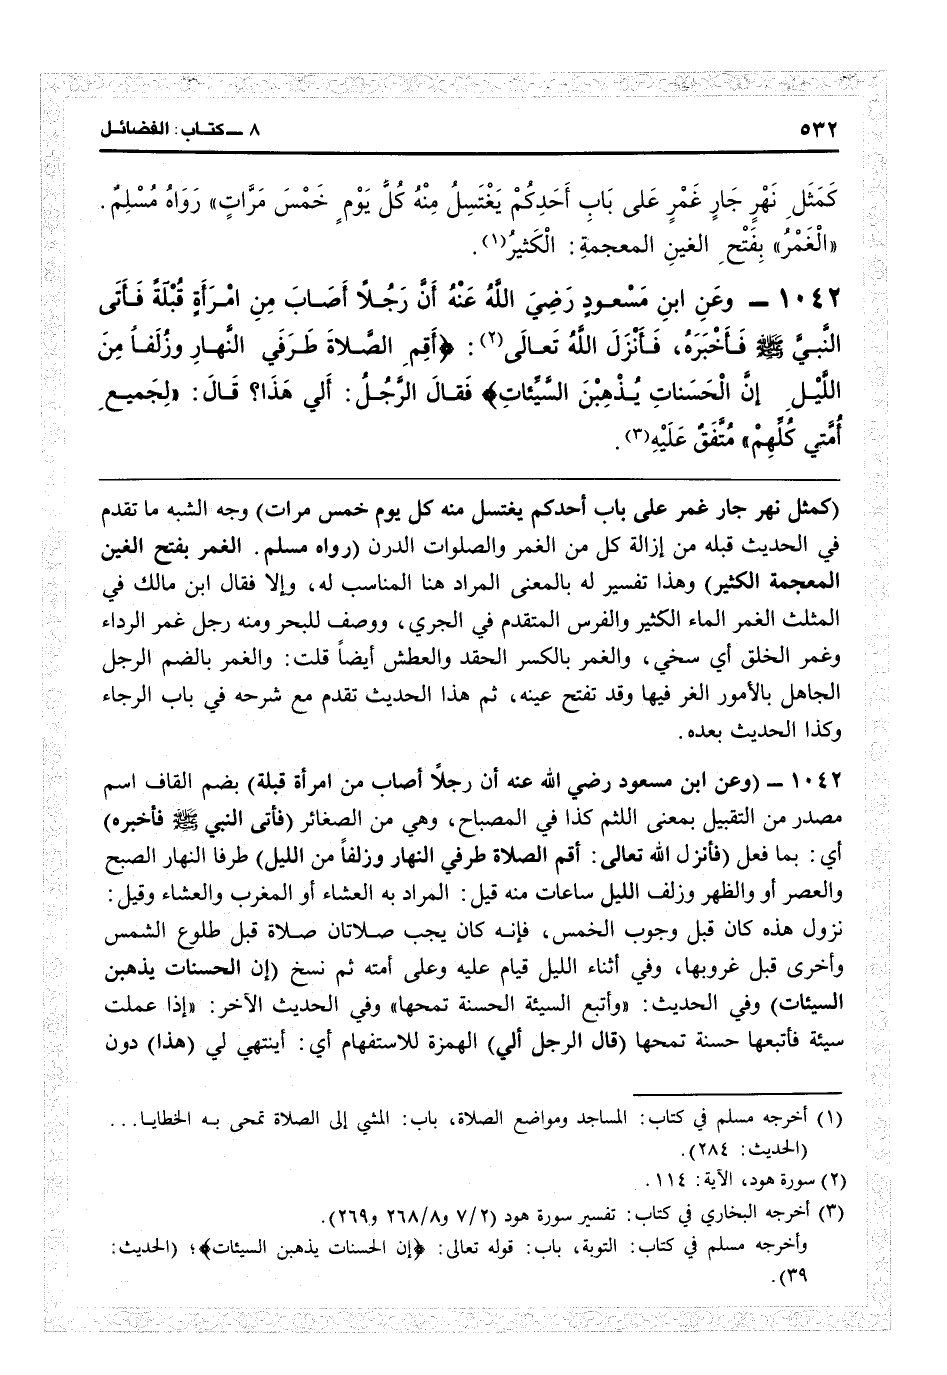 ٥٣٢
٨ ــ كتاب: الفضائل
كَمَثَلِ نَهْرٍ جَارٍ غَمْرٍ عَلى بَابِ أَحَدِكُمْ يَغْتَسِلُ مِنْهُ كُلَّ يَوْمٍ خَمْسَ مَرَّاتٍ» رَوَاهُ مُسْلِمٌ.
«الْغَمْرُ» بِفَتْحِ الغينِ المعجمةِ: الْكَثيرُ(١).
١٠٤٢ ــ وعَنِ ابنِ مَسْعودٍ رَضِيَ اللَّهُ عَنْهُ أَنَّ رَجُلًا أَصَابَ مِنِ امْرَأَةٍ قُبْلَةً فَأَتَى
النَّبِيَّ ﷺ فَأَخْبَرَهُ، فَأَنْزَلَ اللَّهُ تَعالَى(٢): ﴿أَقِمِ الصَّلاةَ طَرَفَي النَّهارِ وزُلَفاً مِنَ
اللَّيْلِ إنَّ الْحَسَناتِ يُذْهِبْنَ السَّيِّئاتِ﴾ فَقالَ الرَّجُلُ: أَلي هَذَا؟ قَالَ: «لِجَميعِ
أُمَّتي كُلِّهِمْ» مُتَّفَقٌ عَلَيْهِ(٣).
(كمثل نهر جار غمر على باب أحدكم يغتسل منه كل يوم خمس مرات) وجه الشبه ما تقدم
في الحديث قبله من إزالة كل من الغمر والصلوات الدرن (رواه مسلم. الغمر بفتح الغين
المعجمة الكثير) وهذا تفسير له بالمعنى المراد هنا المناسب له، وإلا فقال ابن مالك في
المثلث الغمر الماء الكثير والفرس المتقدم في الجري، ووصف للبحر ومنه رجل غمر الرداء
وغمر الخلق أي سخي، والغمر بالكسر الحقد والعطش أيضاً قلت: والغمر بالضم الرجل
الجاهل بالأمور الغر فيها وقد تفتح عينه، ثم هذا الحديث تقدم مع شرحه في باب الرجاء
وكذا الحديث بعده.
١٠٤٢ ــ (وعن ابن مسعود رضي الله عنه أن رجلاً أصاب من امرأة قبلة) بضم القاف اسم
مصدر من التقبيل بمعنى اللثم كذا في المصباح، وهي من الصغائر (فأتى النبي ﷺ فأخبره)
أي: بما فعل (فأنزل الله تعالى: أقم الصلاة طرفي النهار وزلفاً من الليل) طرفا النهار الصبح
والعصر أو والظهر وزلف الليل ساعات منه قيل: المراد به العشاء أو المغرب والعشاء وقيل:
نزول هذه كان قبل وجوب الخمس، فإنه كان يجب صلاتان صلاة قبل طلوع الشمس
وأخرى قبل غروبها، وفي أثناء الليل قيام عليه وعلى أمته ثم نسخ (إن الحسنات يذهبن
السيئات) وفي الحديث: «وأتبع السيئة الحسنة تمحها» وفي الحديث الآخر: «إذا عملت
سيئة فأتبعها حسنة تمحها (قال الرجل ألي) الهمزة للاستفهام أي: أينتهي لي (هذا) دون
(١) أخرجه مسلم في كتاب: المساجد ومواضع الصلاة، باب: المشي إلى الصلاة تمحى به الخطايا...
(الحديث: ٢٨٤).
(٢) سورة هود، الآية: ١١٤.
(٣) أخرجه البخاري في كتاب: تفسير سورة هود (٧/٢ و٢٦٨/٨ و٢٦٩).
وأخرجه مسلم في كتاب: التوبة، باب: قوله تعالى: ﴿إن الحسنات يذهبن السيئات﴾؛ (الحديث:
٣٩).